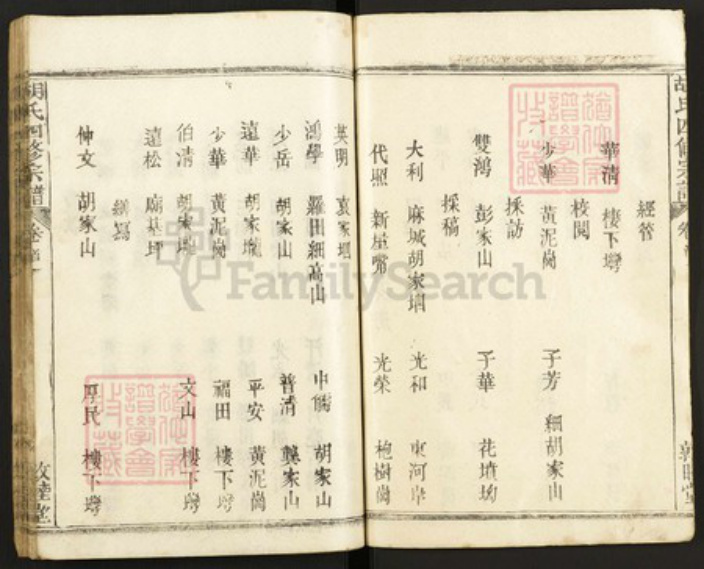 經管
華清 樓下塆
校閱
少華 黃泥崗 子芳 細胡家山
採訪
雙鴻 彭家山 子華 花墳坳
採稿
大利 麻城胡家堌 光和 東河岸
代照 新屋嘴 光榮 枹樹崗
英明 袁家堌
鴻學 羅田細高山 中儒 胡家山
少岳 胡家山 普清 龔家山
遠華 胡家壠 平安 黃泥崗
少華 黃泥崗 福田 樓下塆
伯清 胡家壠 文山 樓下塆
遠松 廟基坪
繕寫
仲文 胡家山 厚民 樓下塆
胡氏四修宗譜 卷首
敦睦堂
FamilySearch